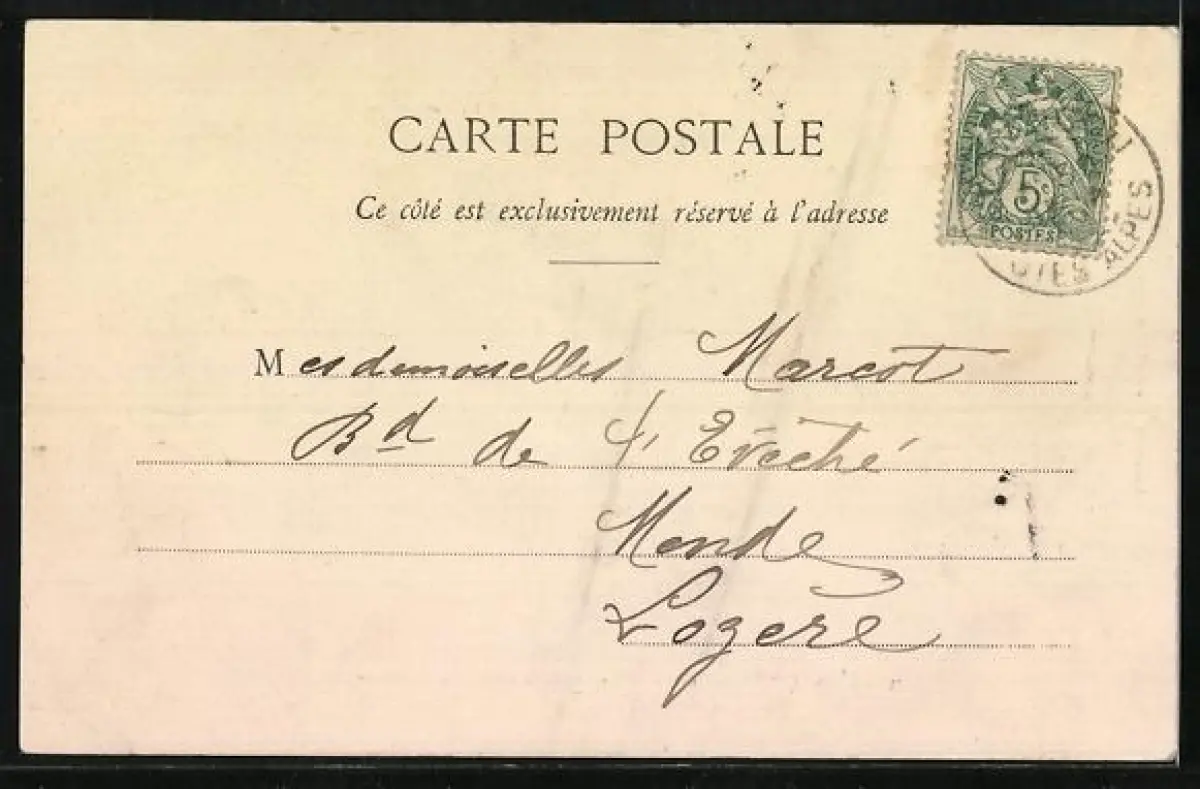 CARTE POSTALE
Ce côté est exclusivement réservé à l'adresse
5c
POSTES
ALPES
Mesdemoiselles Marcot
Bd de l'Evêché
Mende
Lozère